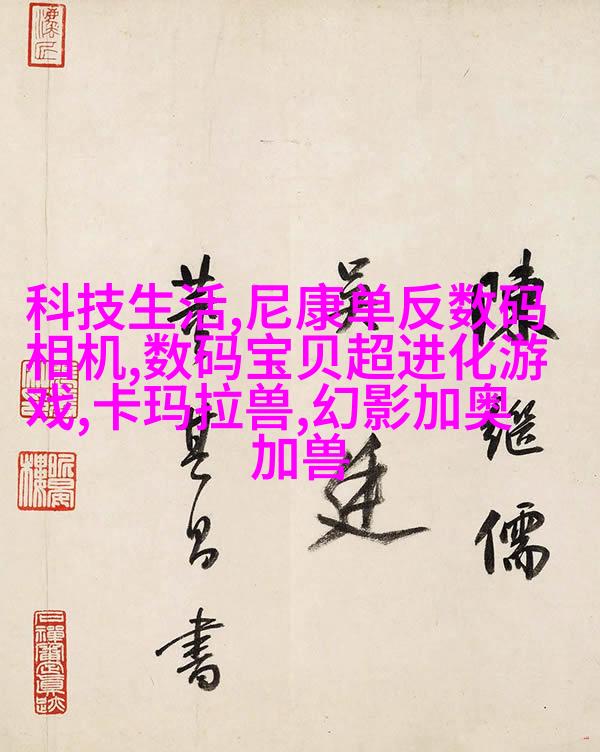 科技生活,尼康单反数码
相机,数码宝贝超进化游
戏,卡玛拉兽,幻影加奥
加兽
陳繼儒
吴廷
董其昌書